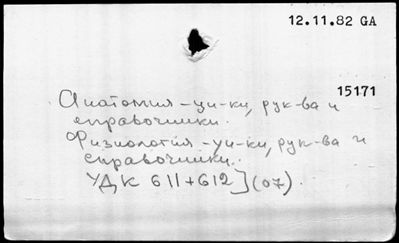 12.11.82 GA
15171
Анатомия - уч-ки, рук-ва и
справочники.
Физиология - уч-ки, рук-ва и
справочники.
УДК 611+612](07).